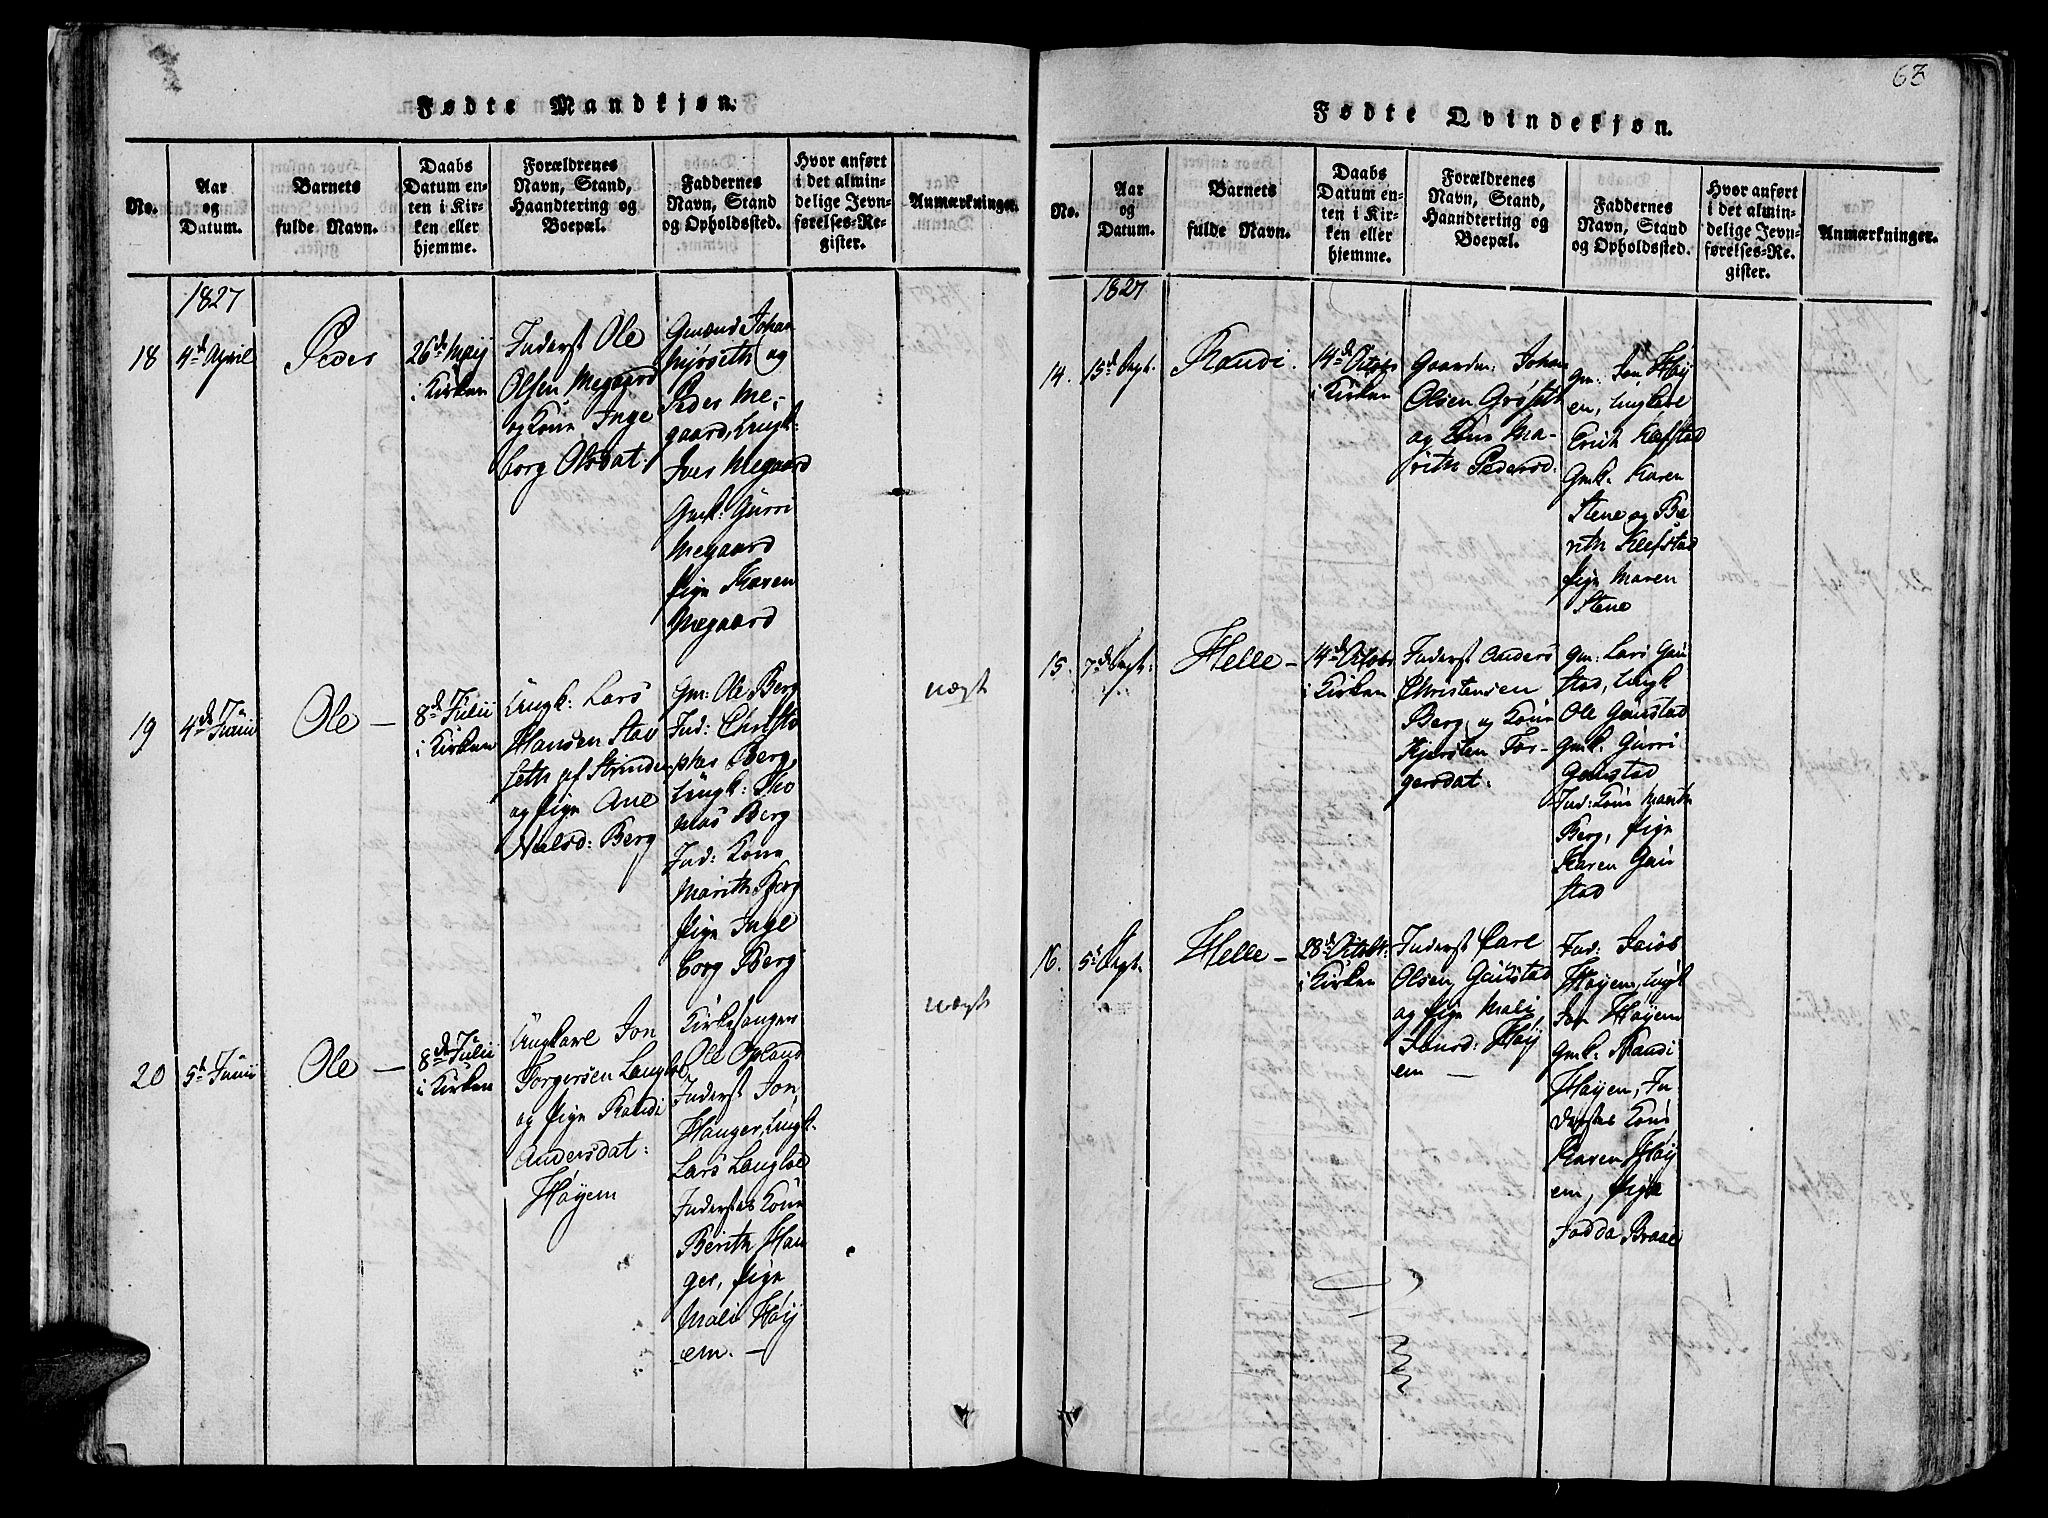 63
Fødte Mandkjøn.
No.
Aar
og
Datum.
Barnets
fulde Navn.
Daabs
Datum en-
ten i Kir-
ken eller
hjemme.
Forældrenes
Navn, Stand,
Haandtering og
Boepæl.
Faddernes
Navn, Stand
og Opholdssted.
Hvor anført
i det almin-
delige Jevn-
førelses-Re-
gister.
Anmærkninger.
1827
18
4de April
Peder
26de Maij
i Kirken
Inderst Ole
Olsen Megaard
og Kone Inge
borg Olsdat:
Gmænd Johan
og
Peder Me-
gaard, Ungk:
Iver Megaard
Gmk: Gurri
Megaard
Pige Karen
Megaard
19
4de Junii
Ole —
8de Julii
i Kirken
Ungk: Lars
Hansen Stav
seth af Strinden
og Pige Ane
Nielsd: Berg
Gm: Ole Berg
Ind: Christo
pher Berg,
Ungk: Tho
mas Berg
Ind: Kone
Marith Berg
Pige Inge
borg Berg
uægt
20
5te Junii
Ole —
8de Julii
i Kirken
Ungkarl Jon
Torgersen Langlos
og Pige Randi
Andersdat:
Høyem
Kirkesanger
Ole Opland
Inderst Jon
Hanger, Ungk:
Lars Langloe
Inderstes Kone
Berith Han
ger, Pige
Mali Høij
em. —
uægt
Fødte Qvindekjøn.
No.
Aar
og
Datum.
Barnets
fulde Navn.
Daabs
Datum en-
ten i Kir-
ken eller
hjemme.
Forældrenes
Navn, Stand,
Haandtering og
Boepæl.
Faddernes
Navn, Stand
og Opholdssted.
Hvor anført
i det almin-
delige Jevn-
førelses-Re-
gister.
Anmærkninger.
1827
14.
15de Sept.
Randi.
14de Octobr
i Kirken
Gaardm: Johan
Olsen Grøseth
og Kone Ma-
rith Pedersd:
Gm: Jon Høij
em, Ungkarl
Erich Klefstad
Gmk: Karen
Stene og Be
rith Klefstad
Pige Maren
Stene
15.
7de Sept.
Helle —
14de Octobr
i Kirken
Inderst Anders
Christensen
Berg og Kone
Kjersten Tor-
gersdat:
Gm: Lars Gau
stad, Ungk
Ole Gaustad
Gmk: Gurri
Gaustad
Ind: Kone Marith
Berg, Pige
Karen Gau
stad
16.
5te Sept.
Helle —
28de Octobr:
i Kirken
Inderst Carl
Olsen Gaustad
og Pige Mali
Jonsd: Høij
em —
Ind: Jacob
Høyem, Ungk
Jon Høyem
Gmk: Randi
Høyem, In
derstes Kone
Karen Høij
em, Pige
Jadda Braae